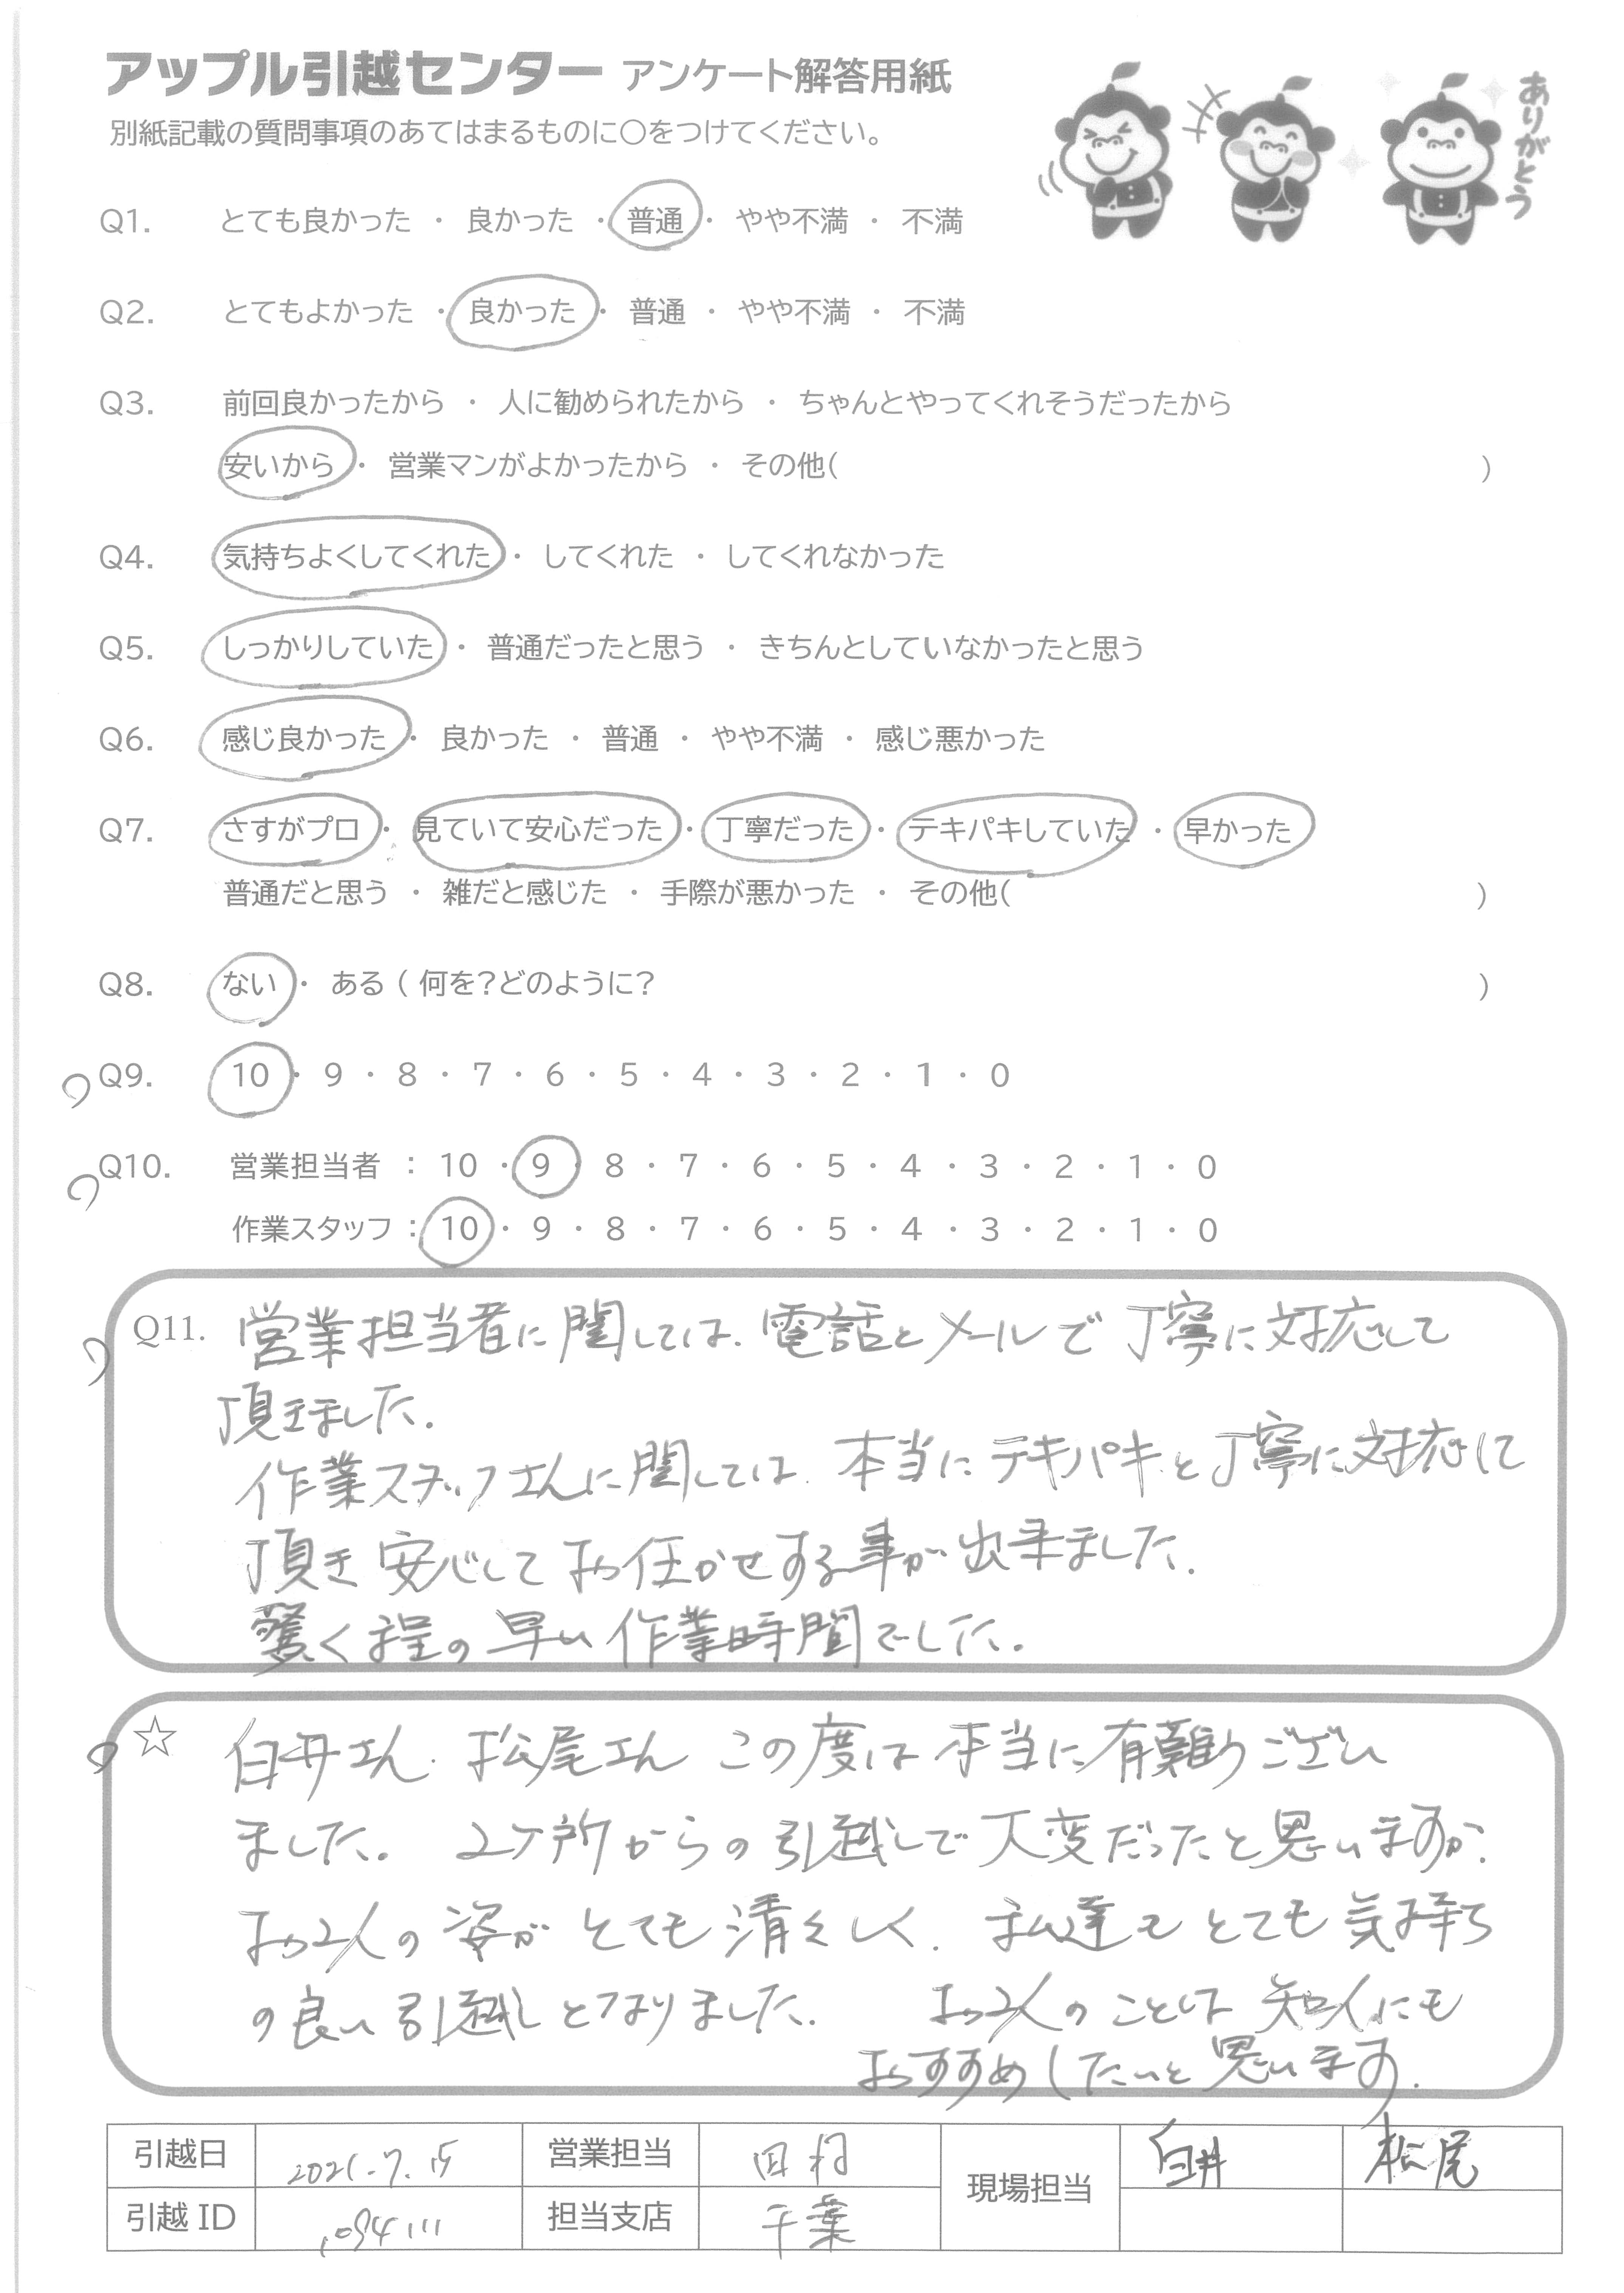 アップル引越センター アンケート解答用紙
別紙記載の質問事項のあてはまるものに〇をつけてください。
ありがとう
Q1. とても良かった ・ 良かった ・ 普通 ・ やや不満 ・ 不満
Q2. とてもよかった ・ 良かった ・ 普通 ・ やや不満 ・ 不満
Q3. 前回良かったから ・ 人に勧められたから ・ ちゃんとやってくれそうだったから
安いから ・ 営業マンがよかったから ・ その他( )
Q4. 気持ちよくしてくれた ・ してくれた ・ してくれなかった
Q5. しっかりしていた ・ 普通だったと思う ・ きちんとしていなかったと思う
Q6. 感じ良かった ・ 良かった ・ 普通 ・ やや不満 ・ 感じ悪かった
Q7. さすがプロ ・ 見ていて安心だった ・ 丁寧だった ・ テキパキしていた ・ 早かった
普通だと思う ・ 雑だと感じた ・ 手際が悪かった ・ その他( )
Q8. ない ・ ある ( 何を?どのように? )
Q9. 10 ・ 9 ・ 8 ・ 7 ・ 6 ・ 5 ・ 4 ・ 3 ・ 2 ・ 1 ・ 0
Q10. 営業担当者 : 10 ・ 9 ・ 8 ・ 7 ・ 6 ・ 5 ・ 4 ・ 3 ・ 2 ・ 1 ・ 0
作業スタッフ : 10 ・ 9 ・ 8 ・ 7 ・ 6 ・ 5 ・ 4 ・ 3 ・ 2 ・ 1 ・ 0
Q11. 営業担当者に関しては、電話とメールで丁寧に対応して
頂きました.
作業スタッフさんに関しては、本当にテキパキと丁寧に対応して
頂き 安心してお任かせする事が出来ました.
驚く程の早い作業時間でした.
☆ 白井さん. 松尾さん この度は本当に有難うござい
ました。 2ヶ所からの引越しで大変だったと思いますが、
お2人の姿がとても清々しく、私達もとても気持ち
の良い引越しとなりました. お2人のことは知人にも
おすすめしたいと思います.
引越日 2021.7.15 営業担当 田村 現場担当 白井 松尾
引越ID 担当支店 千葉